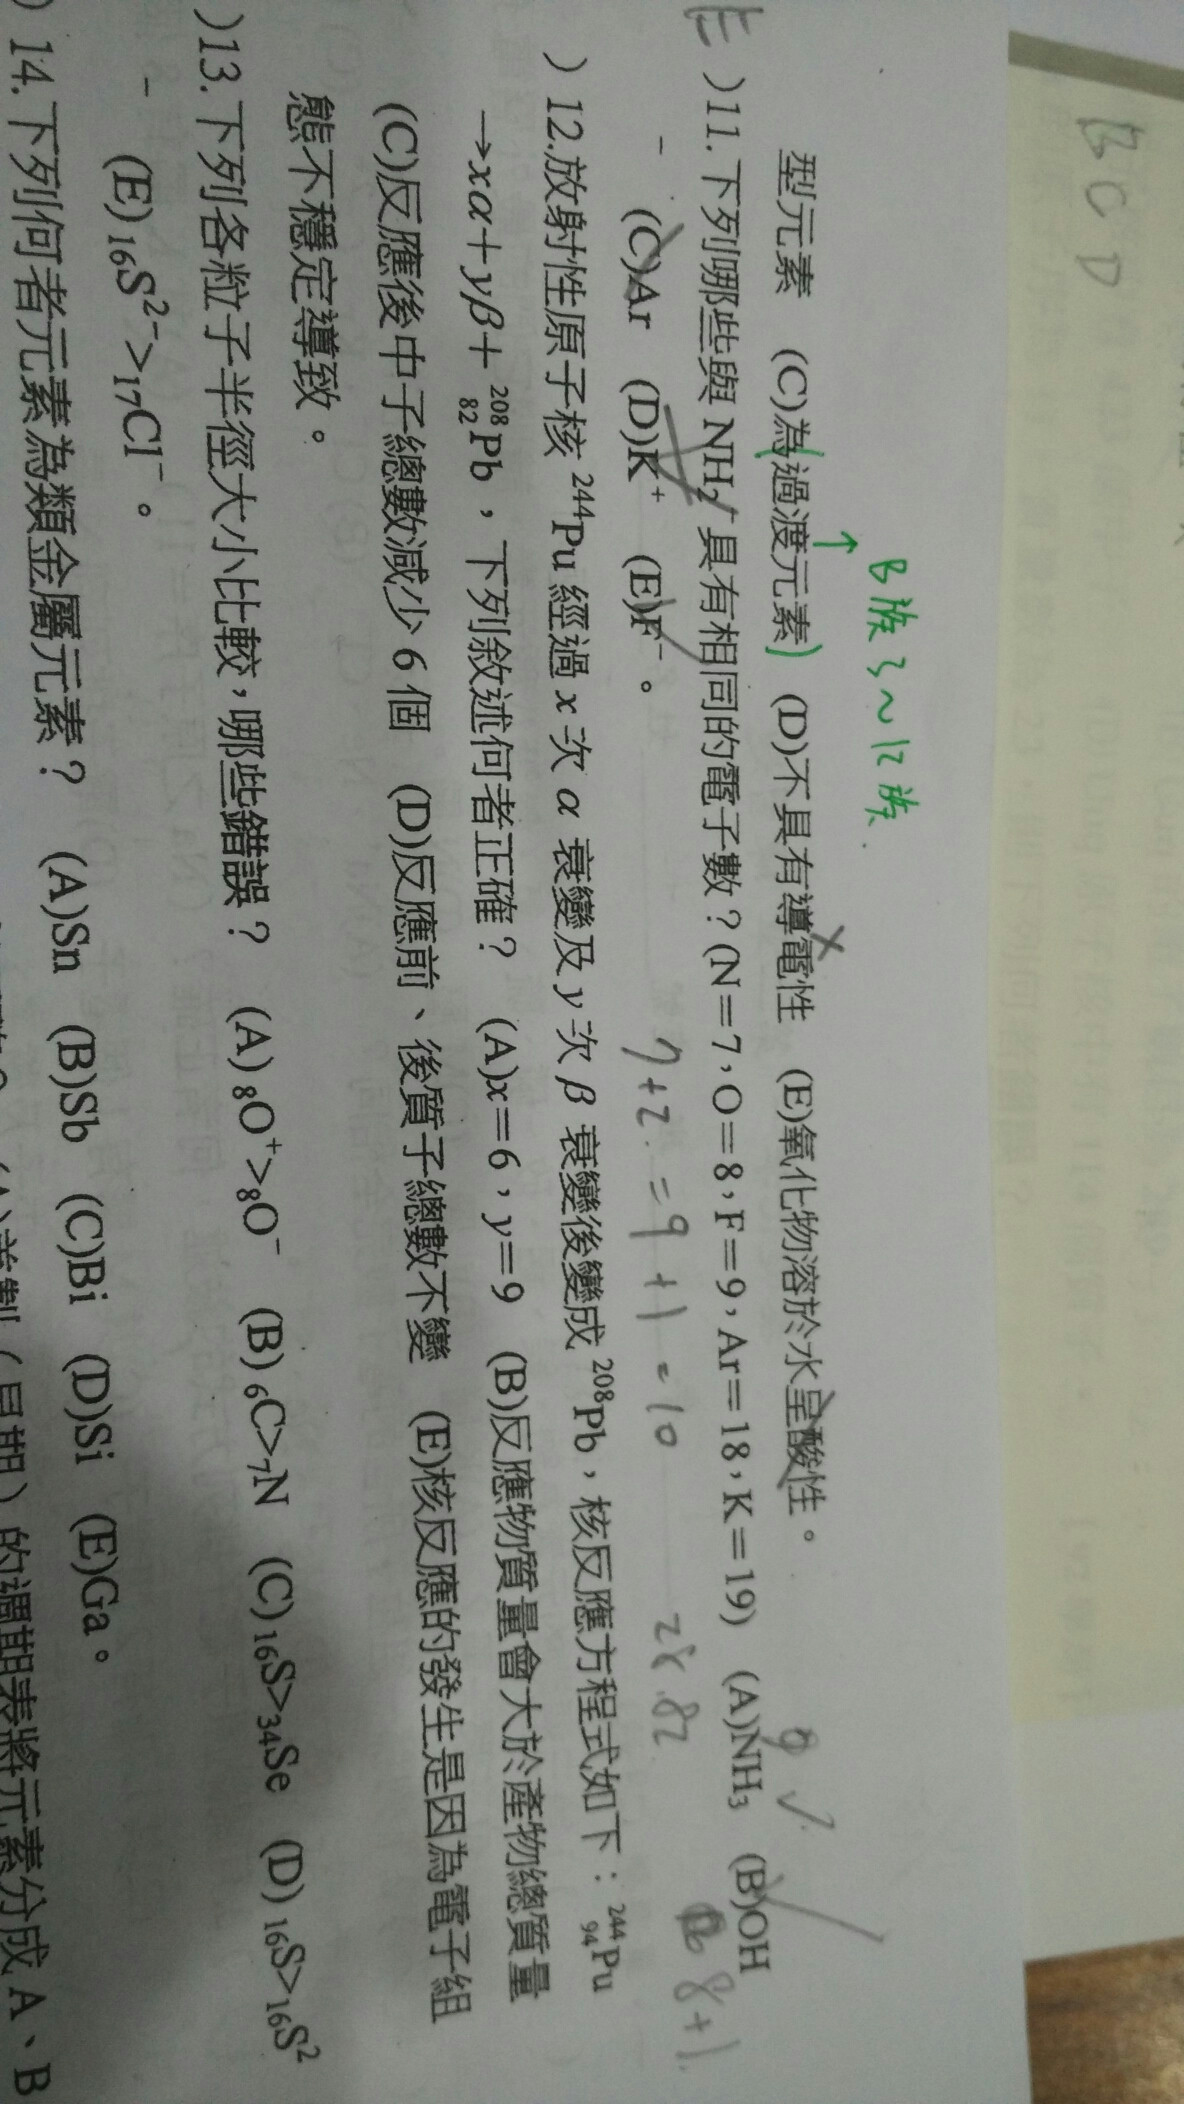 BCD
B族 3~12族
型元素 (C)為過渡元素 (D)不具有導電性 (E)氧化物溶於水呈酸性。
E )11.下列哪些與 NH₂⁻具有相同的電子數？(N＝7，O＝8，F＝9，Ar＝18，K＝19) (A)NH₃ (B)OH
⁻ (C)Ar (D)K⁺ (E)F⁻。
7+2=9+1=10
8+1
)12.放射性原子核 ²⁴⁴Pu 經過 x 次 α 衰變及 y 次 β 衰變後變成 ²⁰⁸Pb，核反應方程式如下：²⁴⁴₉₄Pu
→xα＋yβ＋²⁰⁸₈₂Pb，下列敘述何者正確？ (A)x＝6，y＝9 (B)反應物質量會大於產物總質量
(C)反應後中子總數減少 6 個 (D)反應前、後質子總數不變 (E)核反應的發生是因為電子組
態不穩定導致。
)13.下列各粒子半徑大小比較，哪些錯誤？ (A) ₈O⁺>₈O⁻ (B) ₆C>₇N (C) ₁₆S>₃₄Se (D) ₁₆S>₁₆S²
⁻ (E) ₁₆S²⁻>₁₇Cl⁻。
)14.下列何者元素為類金屬元素？ (A)Sn (B)Sb (C)Bi (D)Si (E)Ga。
的週期表將元素分成 A、B